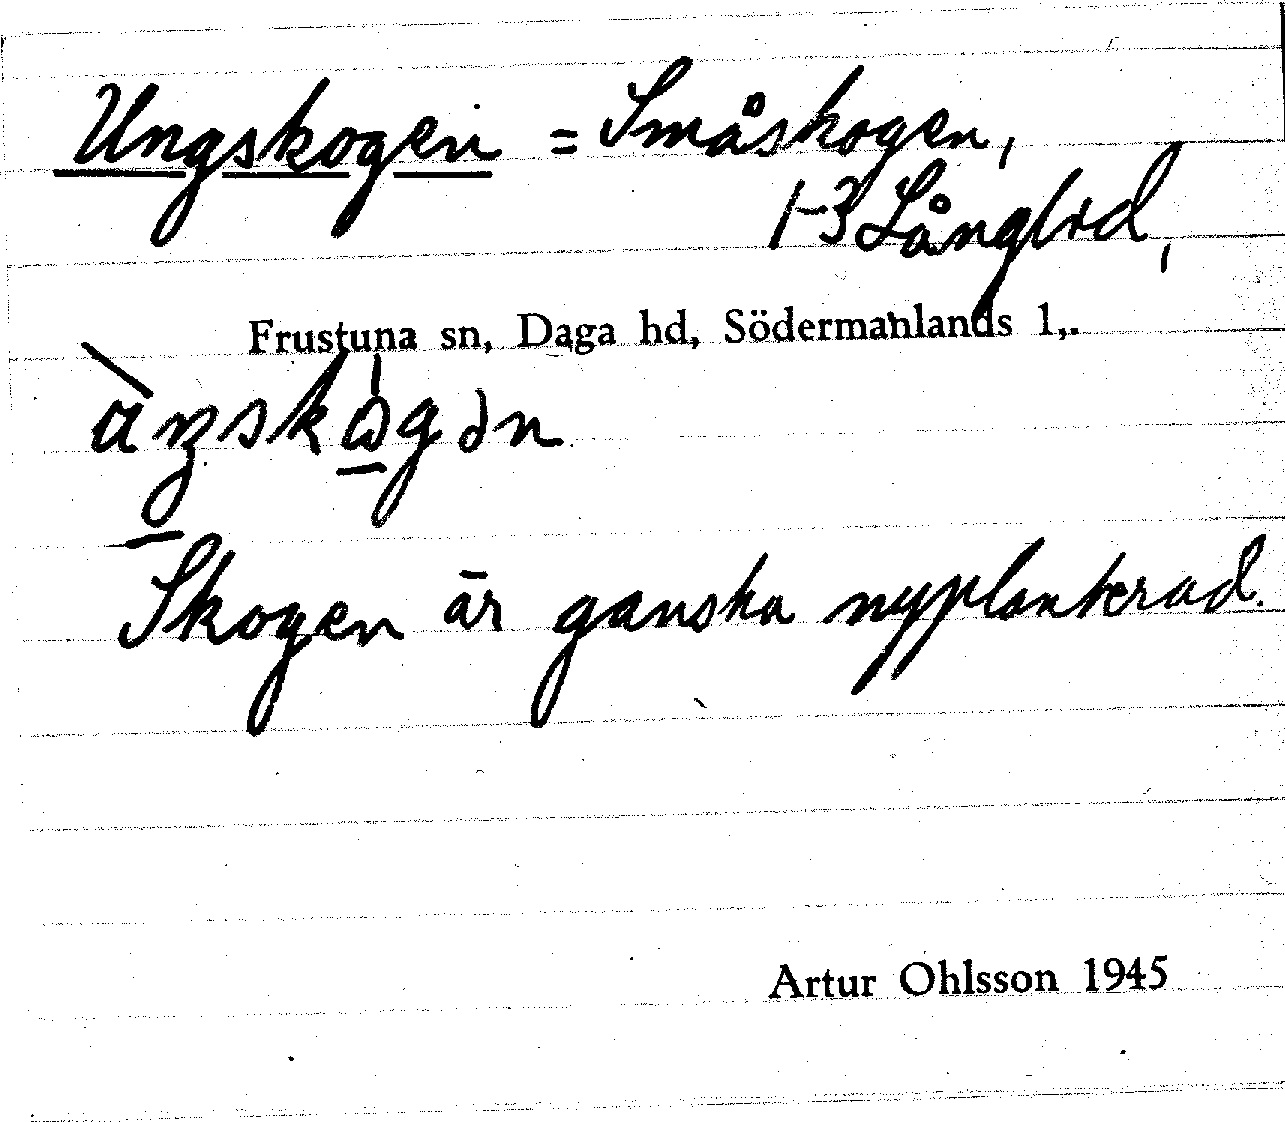 Ungskogen = Småskogen,
1-3 Långbrd,
Frustuna sn, Daga hd, Södermanlands l,.
Skogen är ganska nyplanterad.
Artur Ohlsson 1945